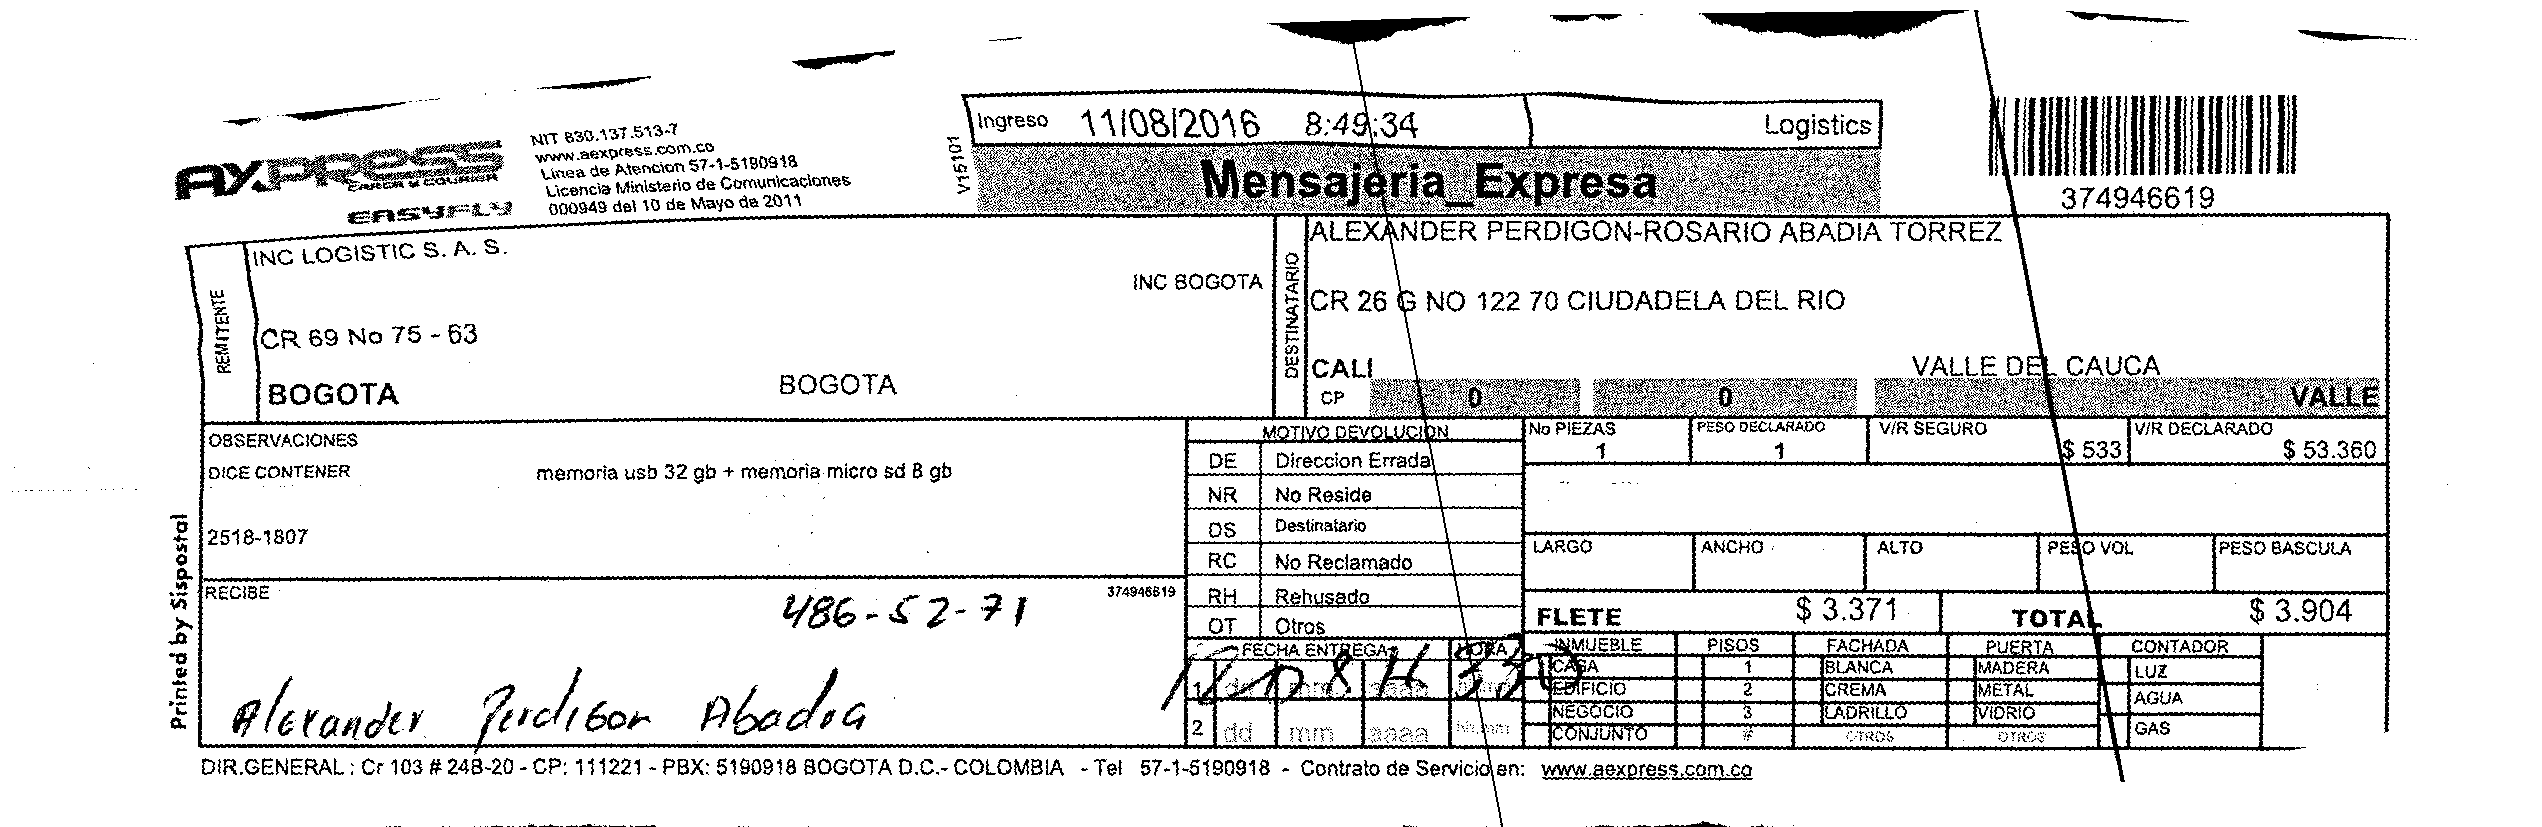 AXPRESS
CARGA Y COURIER
EASYFLY
NIT 830.137.513-7
www.aexpress.com.co
Linea de Atencion 57-1-5190918
Licencia Ministerio de Comunicaciones
000949 del 10 de Mayo de 2011
V15101
Ingreso 11/08/2016 8:49:34 Logistics
Mensajería_Expresa
374946619
REMITENTE
INC LOGISTIC S. A. S.
INC BOGOTA
CR 69 No 75 - 63
BOGOTA BOGOTA
DESTINATARIO
ALEXANDER PERDIGON-ROSARIO ABADIA TORREZ
CR 26 G NO 122 70 CIUDADELA DEL RIO
CALI VALLE DEL CAUCA
CP 0 0 VALLE
OBSERVACIONES
DICE CONTENER memoria usb 32 gb + memoria micro sd 8 gb
2518-1807
MOTIVO DEVOLUCION
DE Direccion Errada
NR No Reside
DS Destinatario
RC No Reclamado
RH Rehusado
OT Otros
No PIEZAS PESO DECLARADO V/R SEGURO V/R DECLARADO
1 1 $ 533 $ 53.360
LARGO ANCHO ALTO PESO VOL PESO BASCULA
FLETE $ 3.371 TOTAL $ 3.904
RECIBE 374946619
486-52-71
Alexander Perdigon Abadia
FECHA ENTREGA HORA
1 dd mm aaaa
2 dd mm aaaa hh:mm
INMUEBLE PISOS FACHADA PUERTA CONTADOR
CASA 1 BLANCA MADERA LUZ
EDIFICIO 2 CREMA METAL AGUA
NEGOCIO 3 LADRILLO VIDRIO
CONJUNTO # OTROS OTROS GAS
Printed by Sispostal
DIR.GENERAL : Cr 103 # 24B-20 - CP: 111221 - PBX: 5190918 BOGOTA D.C.- COLOMBIA - Tel 57-1-5190918 - Contrato de Servicio en: www.aexpress.com.co